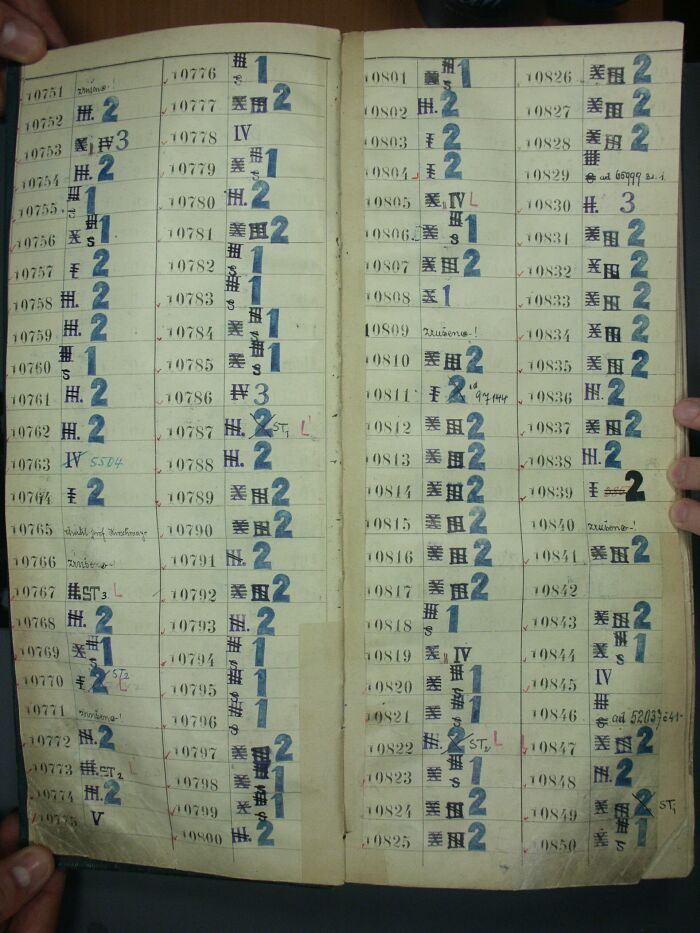 10751 zrušeno!
10752 III. 2
10753 X II IV 3
10754 III. 2
10755 III S 1
10756 X III S 1
10757 I 2
10758 III. 2
10759 III. 2
10760 III S 1
10761 III. 2
10762 III. 2
10763 IV 5504
10764 I 2
10765
10766 zrušeno!
10767 II. ST3 L
10768 III. 2
10769 X III S 1
10770 I 2 ST2 L
10771 zrušeno!
10772 III. 2
10773 III. ST2 L
10774 III. 2
10775 V
10776 III S 1
10777 X III 2
10778 IV
10779 X III S 1
10780 III. 2
10781 X III 2
10782 III S 1
10783 III S 1
10784 X III S 1
10785 X III S 1
10786 IV 3
10787 III. 2 ST1 L
10788 III. 2
10789 X III 2
10790 X III 2
10791 III. 2
10792 X III 2
10793 III. 2
10794 III S 1
10795 III S 1
10796 III S 1
10797 X III 2
10798 X III S 1
10799 X III S 1
10800 III. 2
10801 III S 1
10802 III. 2
10803 I 2
10804 I 2
10805 X II IV L
10806 X III S 1
10807 X III 2
10808 X 1
10809 zrušeno!
10810 X III 2
10811 I 2 97144
10812 X III 2
10813 X III 2
10814 X III 2
10815 X III 2
10816 X III 2
10817 X III 2
10818 III S 1
10819 X II IV
10820 X III S 1
10821 X III S 1
10822 III. 2 ST2 L
10823 X III S 1
10824 X III 2
10825 X III 2
10826 X III 2
10827 X III 2
10828 X III 2
10829 III S ad 65999
10830 II. 3
10831 X III 2
10832 X III 2
10833 X III 2
10834 X III 2
10835 X III 2
10836 III. 2
10837 X III 2
10838 III. 2
10839 I 2
10840 zrušeno!
10841 X III 2
10842
10843 X III 2
10844 X III S 1
10845 IV
10846 III S ad 52037
10847 X III 2
10848 III. 2
10849 X III 2 ST1
10850 X III S 1